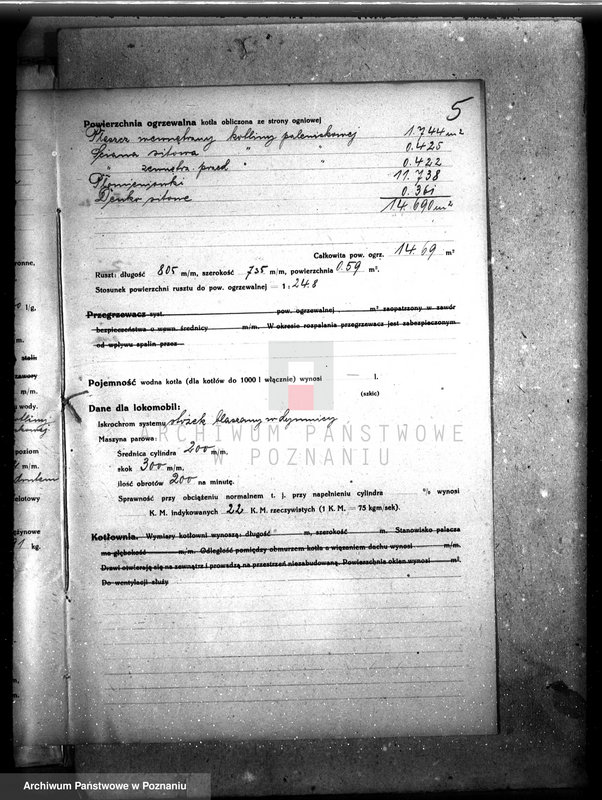 5
Powierzchnia ogrzewalna kotła obliczona ze strony ogniowej
Płaszcz wewnętrzny kotliny paleniskowej 1.744 m²
Ściana sitowa " " 0.425
" zewnętrz. przed " " 0.422
Płomieniówki 11.738
Denko sitowe 0.361
14.690 m²
Całkowita pow. ogrz. 14.69 m²
Ruszt: długość 805 m/m, szerokość 735 m/m, powierzchnia 0.59 m².
Stosunek powierzchni rusztu do pow. ogrzewalnej = 1: 24.8
Przegrzewacz syst. pow. ogrzewalnej , m² zaopatrzony w zawór
bezpieczeństwa o wewn. średnicy m/m. W okresie rozpalania przegrzewacz jest zabezpieczonym
od wpływu spalin przez
Pojemność wodna kotła (dla kotłów do 1000 l włącznie) wynosi — l.
(szkic)
Dane dla lokomobil:
Iskrochron systemu stożek blaszany w dymnicy
Maszyna parowa:
Średnica cylindra 200 m/m,
skok 300 m/m,
ilość obrotów 200 na minutę.
Sprawność przy obciążeniu normalnem t. j. przy napełnieniu cylindra % wynosi
K. M. indykowanych 22 K. M. rzeczywistych (1 K. M. = 75 kgm/sek).
Kotłownia. Wymiary kotłowni wynoszą: długość m, szerokość m. Stanowisko palacza
ma głębokość m/m. Odległość pomiędzy obmurzem kotła a wiązaniem dachu wynosi m/m.
Drzwi otwierają się na zewnątrz i prowadzą na przestrzeń niezabudowaną. Powierzchnia okien wynosi m².
Do wentylacji służy
ARCHIWUM PAŃSTWOWE
W POZNANIU
Archiwum Państwowe w Poznaniu